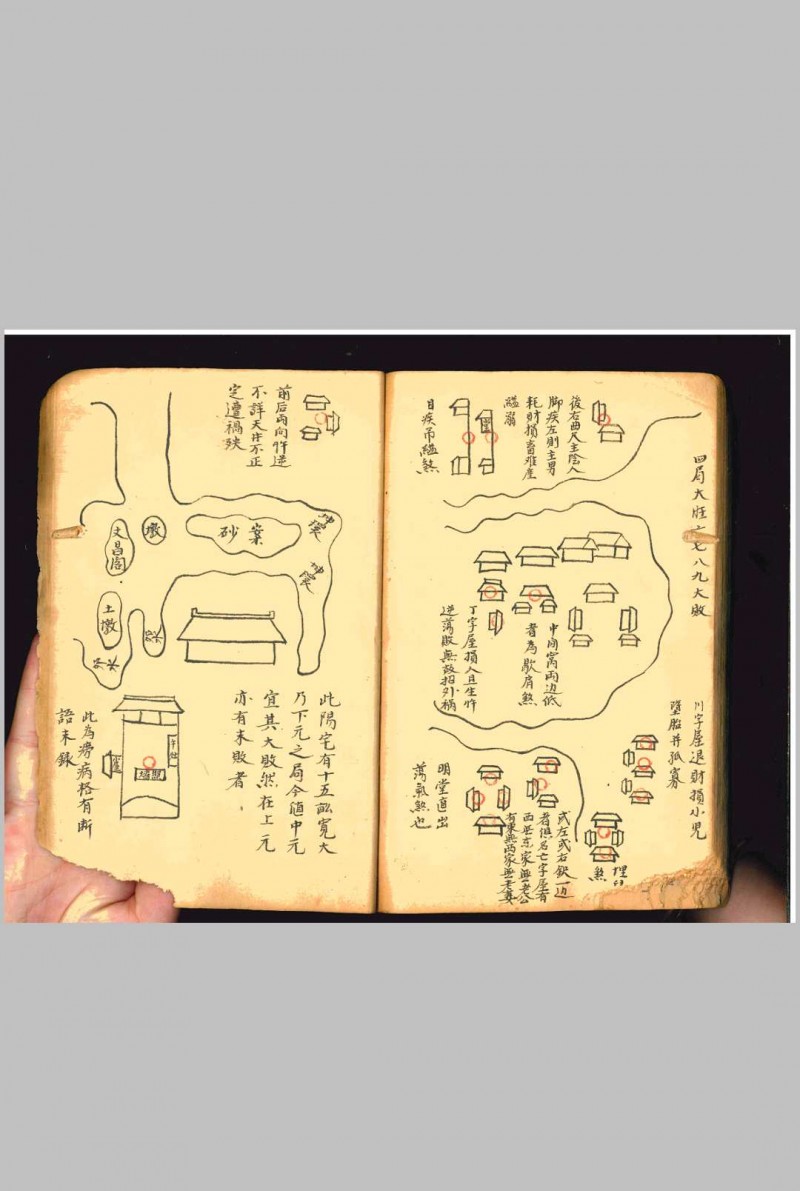 四局大旺六七八九大敗
川字屋退財損小兒
墮胎并孤寡
後右曲尺主陰人
脚疾左則主男
耗財損畜难産
縊溺
目疾吊縊煞
中间高两边低
者為歇肩煞
丁字屋損人且生忤
逆蕩敗無救招外禍
埋
煞
或左或右缺一边
者俱名亡字屋有
西無东家無老公
有東無西家無老妻
明堂直出
蕩氣煞也
前后两向忤逆
不詳天井不正
定遭禍殃
坤
坤
案砂
墩
文昌閣
土墩
此陽宅有十五畝寬大
乃下元之局今值中元
宜其大敗然在上元
亦有未敗者
此為癆病格有断
語未錄